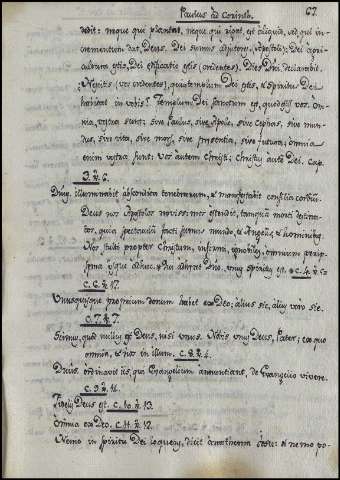 Paulus ad Corinth. 67
dedit: neque qui plantat, neque qui rigat, est aliquid, sed, qui in-
crementum dat, Deus. Dei sumus adjutores (Apostoli): Dei agri-
cultura estis, Dei edificatio estis (credentes). Dies Dni declarabit.
Nescitis (vos credentes), quia templum Dei estis, & Spiritus Dei
habitat in vobis? Templum Dei sanctum est, quod estis vos. Om-
nia vestra sunt; sive Paulus, sive Apollo, sive Cephas, sive mun-
dus, sive vita, sive mors, sive presentia, sive futura; omnia
enim vestra sunt: vos autem Christi: Christus autem Dei. Cap.
3. 6.
Dnus illuminabit abscondita tenebrarum, & manifestabit consilia cordium.
Deus nos Apostolos novissimos ostendit, tamquam morti destina-
tos, quia spectaculum facti sumus mundo, & Angelis, & hominibus.
Nos stulti propter Christum, infirmi, ignobiles, omnium perip-
sema usque adhuc. Qui adheret Dno, unus spiritus est. C. 4.
C. 6. 17.
Unusquisque proprium donum habet ex Deo; alius sic, alius vero sic.
C. 7. 7.
Scimus, quod nullus est Deus, nisi unus. Nobis unus Deus, Pater; ex quo
omnia, & nos in illum. C. 8. 4.
Dnus ordinavit iis, qui Evangelium annuntiant, de Evangelio vivere.
C. 9. 14.
Fidelis Deus est. C. 10. 13.
Omnia ex Deo. C. 11. 12.
Nemo in Spiritu Dei loquens, dicit anathema Jesu: & nemo po-